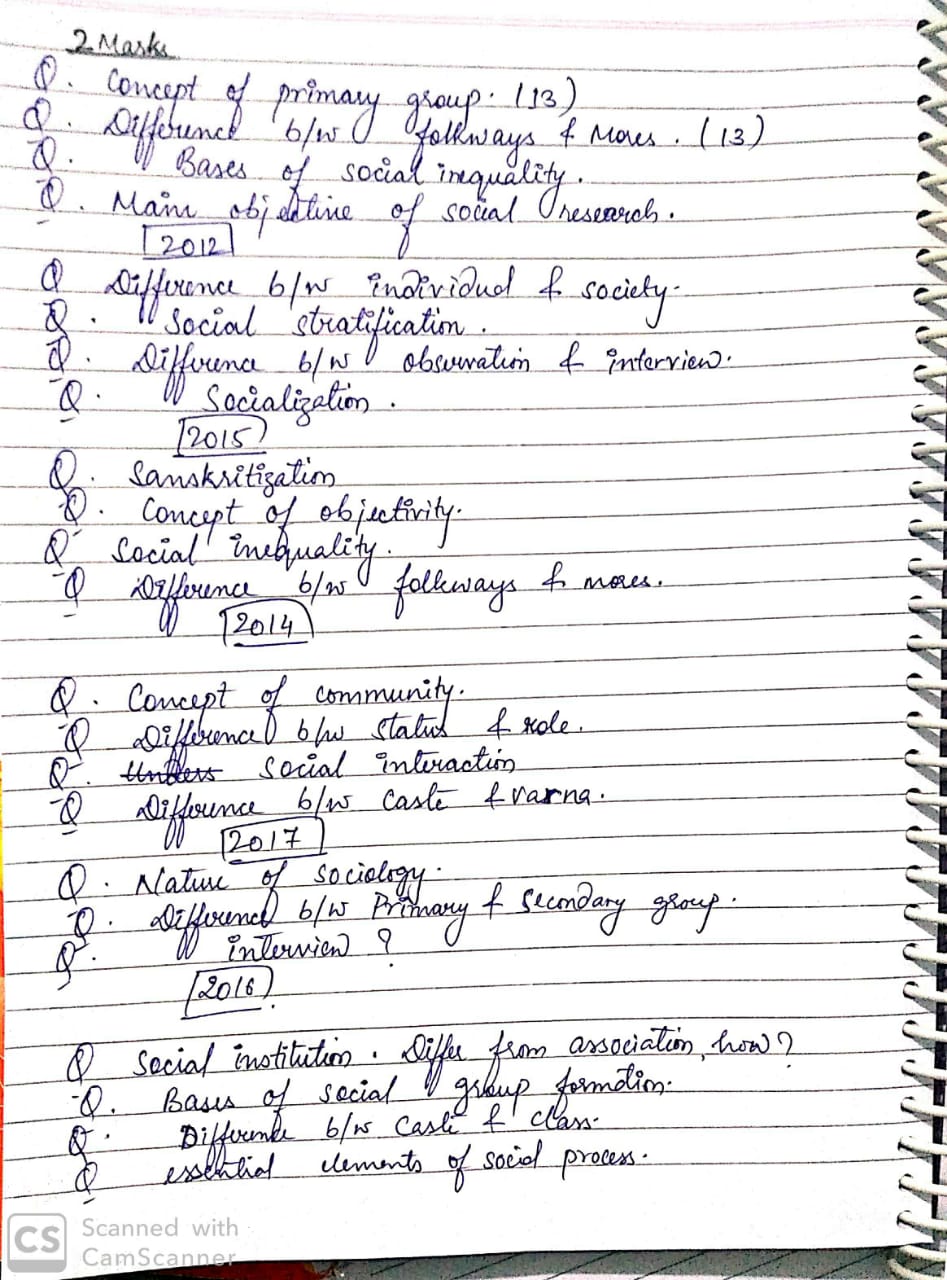 2 Marks
Q. Concept of primary group. (13)
Q. Difference b/w folkways & Mores. (13)
Q. Bases of social inequality.
Q. Main objective of social research.
2012
Q Difference b/w individual & society.
Q. Social stratification.
Q. Difference b/w observation & interview.
Q. Socialization.
2015
Q. Sanskritization
Q. Concept of objectivity.
Q Social inequality.
Q Difference b/w folkways & mores.
2014
Q. Concept of community.
Q Difference b/w Status & role.
Q. Social interaction
Q Difference b/w Caste & varna.
2017
Q. Nature of sociology.
Q. Difference b/w Primary & Secondary group.
Q. interview?
2016
Q Social institution. Differ from association, how?
Q. Bases of social group formation.
Q. Difference b/w Caste & class.
Q essential elements of social process.
CS Scanned with
CamScanner